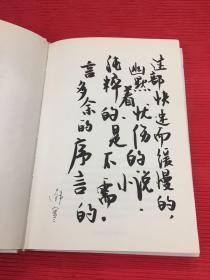 这部快速而缓慢的，
幽默着忧伤的小说.
纯粹的是不需
要多余的序言的
韩寒